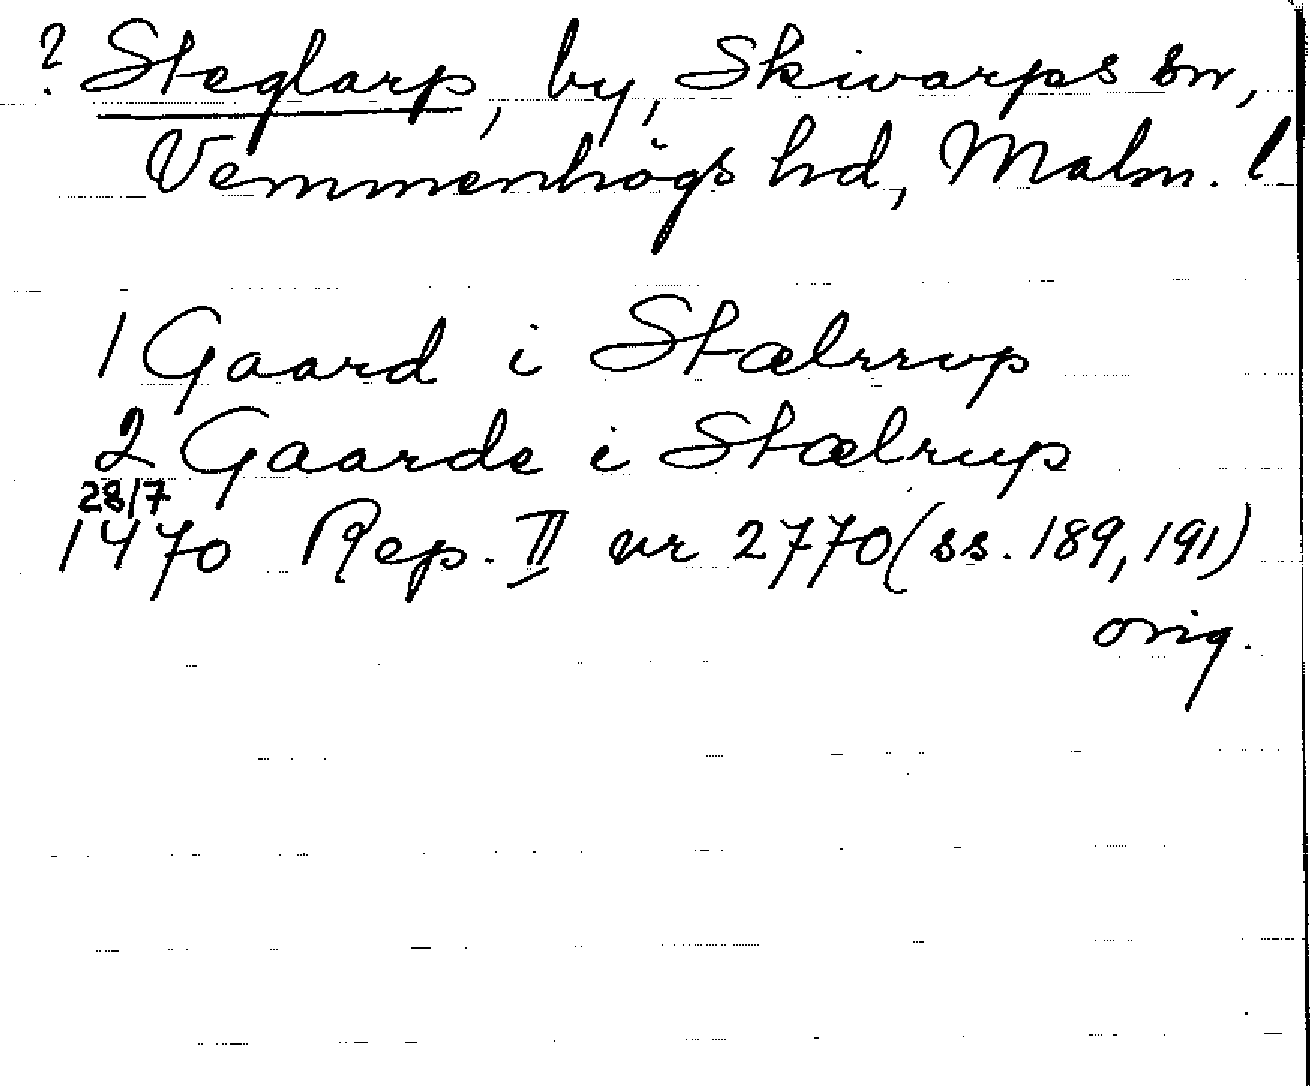 ? Steglarp, by, Skivarps sn,
Vemmenhögs hd, Malm. l
1 Gaard i Stælrrup
2 Gaarde i Stælrup
28/7
1470 Rep. II nr 2770 (ss. 189, 191)
orig.